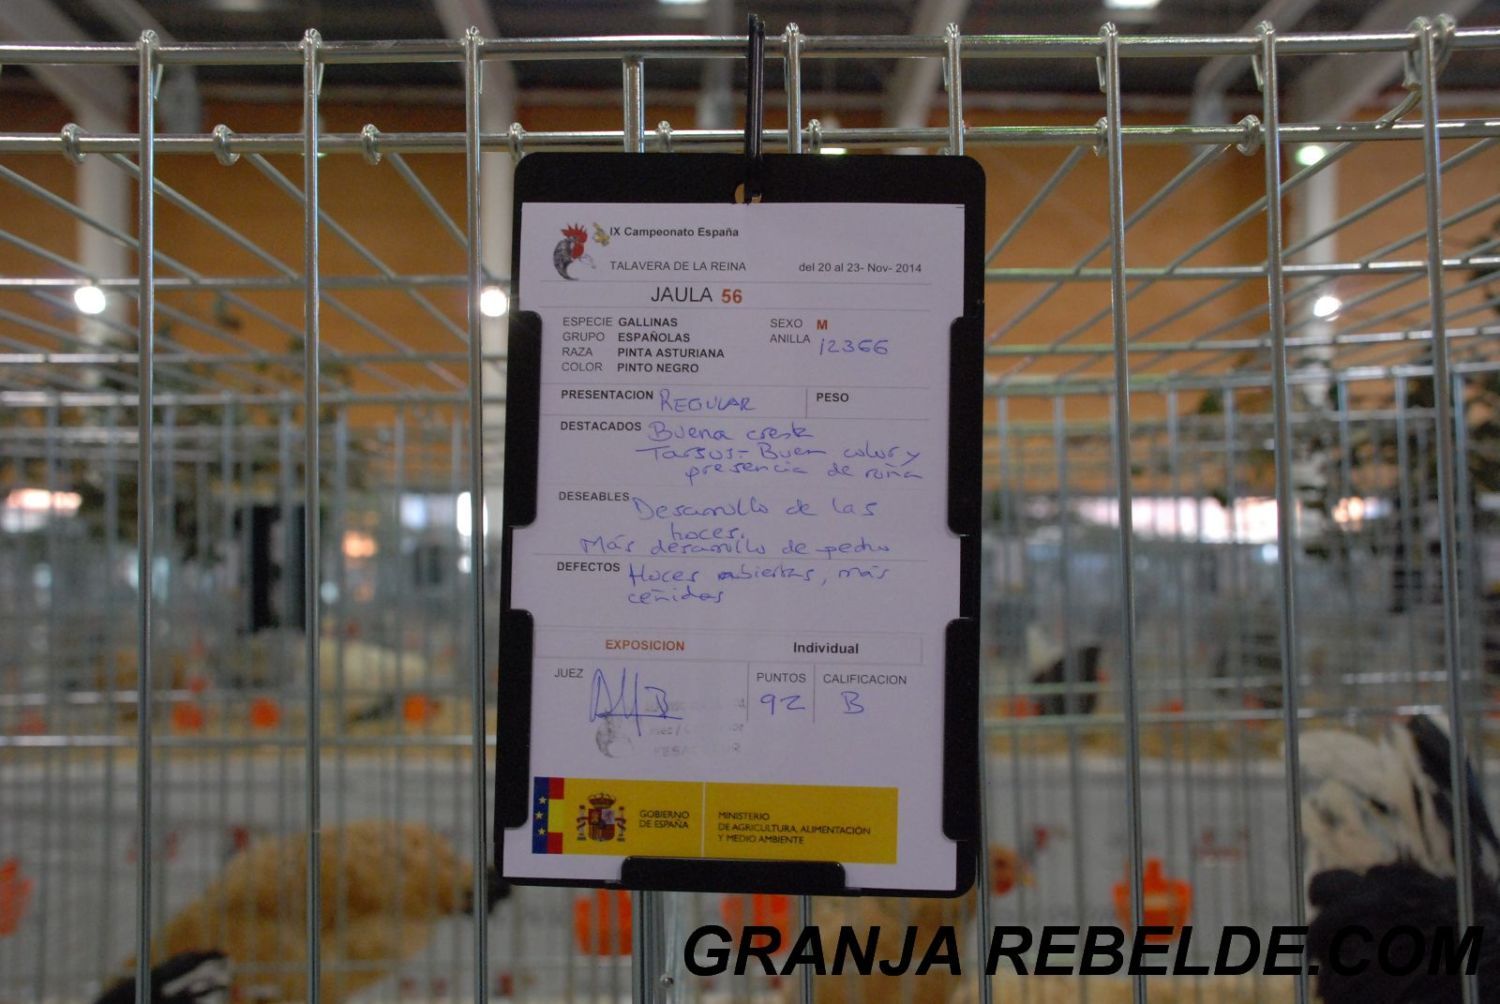 IX Campeonato España
TALAVERA DE LA REINA del 20 al 23- Nov- 2014
JAULA 56
ESPECIE GALLINAS SEXO M
GRUPO ESPAÑOLAS ANILLA 12366
RAZA PINTA ASTURIANA
COLOR PINTO NEGRO
PRESENTACION REGULAR PESO
DESTACADOS Buena cresta
Tarsos- Buen color y
presencia de roña
DESEABLES Desarrollo de las
hoces.
Más desarrollo de pecho
DEFECTOS Hoces abiertas, más
ceñidas
EXPOSICION Individual
JUEZ PUNTOS CALIFICACION
92 B
GOBIERNO
DE ESPAÑA
MINISTERIO
DE AGRICULTURA, ALIMENTACIÓN
Y MEDIO AMBIENTE
GRANJA REBELDE.COM